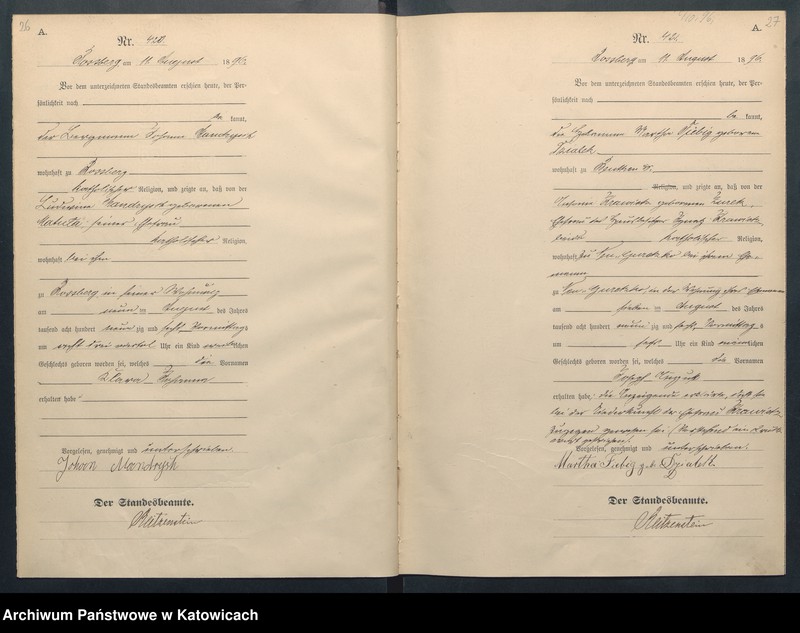 26
A.
Nr. 420
Rossberg am 11 August 1896.
Vor dem unterzeichneten Standesbeamten erschien heute, der Per-
sönlichkeit nach
be kannt,
der Bergmann Johann
wohnhaft zu Rossberg
katholischer Religion, und zeigte an, daß von der
Ludwina geborenen
seiner Ehefrau
katholischer Religion,
wohnhaft bei ihm
zu Rossberg in seiner Wohnung
am neun ten August des Jahres
tausend acht hundert neun zig und sechs Vormittags
um acht drei viertel Uhr ein Kind weiblichen
Geschlechts geboren worden sei, welches die Vornamen
Klara Johanna
erhalten habe
Vorgelesen, genehmigt und unterschrieben
Johann Mandrysch
Der Standesbeamte.
27
A.
Nr. 421
Rossberg am 11 August 1896.
Vor dem unterzeichneten Standesbeamten erschien heute, der Per-
sönlichkeit nach
be kannt,
die Hebamme Martha Fiebig geborene
wohnhaft zu Beuthen
Religion, und zeigte an, daß von der
geborenen
Ehefrau des
katholischer Religion,
wohnhaft zu bei ihrem Ehe-
manne
zu in der Wohnung ihres Ehemannes
am sieben ten August des Jahres
tausend acht hundert neun zig und sechs Vormittag s
um sechs Uhr ein Kind männlichen
Geschlechts geboren worden sei, welches die Vornamen
Josef August
erhalten habe, die Anzeigende erklärte, daß sie
bei der Niederkunft der Ehefrau
zugegen gewesen sei.
Vorgelesen, genehmigt und unterschrieben
Martha Fiebig geb.
Der Standesbeamte.
Archiwum Państwowe w Katowicach